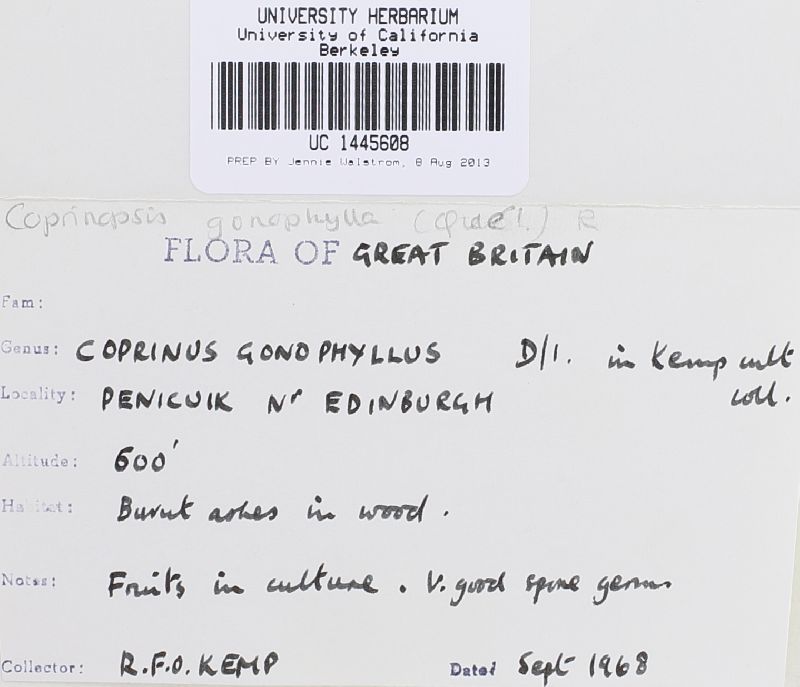 UNIVERSITY HERBARIUM
University of California
Berkeley
UC 1445608
PREP BY Jennie Walstrom, 8 Aug 2013
Coprinopsis gonophylla (Quél.) R
FLORA OF GREAT BRITAIN
Fam:
Genus: COPRINUS GONOPHYLLUS D/1. in Kemp cult
coll.
Locality: PENICUIK Nr EDINBURGH
Altitude: 600'
Habitat: Burnt ashes in wood.
Notes: Fruits in culture. V. good spore germn
Collector: R.F.O. KEMP Date: Sept 1968